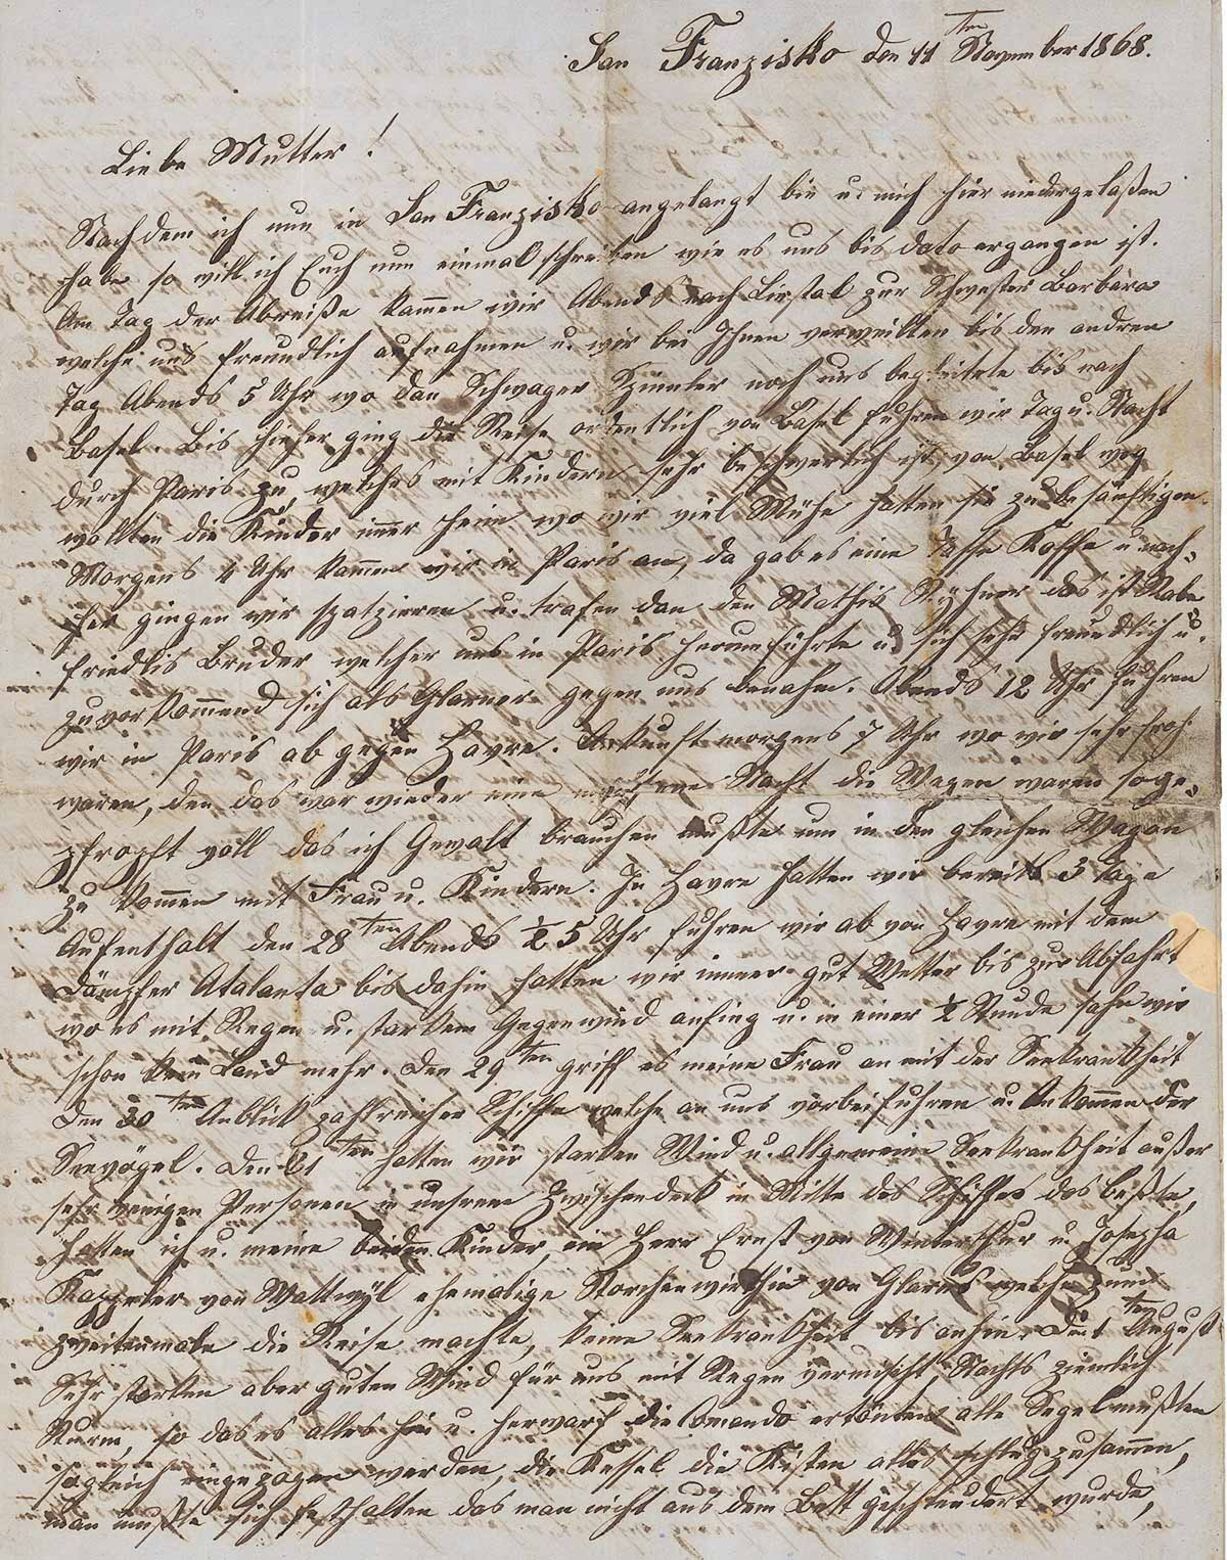 San Franzisko den 11ten November 1868.
Liebe Mutter!
Nachdem ich nun in San Franzisko angelangt bin u. mich hier niedergelaßen
habe so will ich Euch nun einmal schreiben wie es uns bis dato ergangen ist.
Am Tag der Abreiße kammen wir Abends nach Liestal zur Schwester Barbara
welche uns freundlich aufnahmen u. wir bei Ihnen verweilten bis den andren
Tag Abends 5 Uhr wo dan Schwager noch uns begleitete bis nach
Basel. Bis hieher ging die Reise ordentlich von Basel fuhren wir Tag u. Nacht
durch Paris zu welches mit Kindern sehr beschwerlich ist, von Basel weg
wollten die Kinder imer heim wo wir viel Mühe hatten sie zu besänftigen.
Morgens 4 Uhr kammen wir in Paris an, da gab es eine Tasse Kaffe u nach-
her gingen wir spatzieren u. trafen dan den Mathis das ist
friedlis Bruder welcher uns in Paris herumführte u sich sehr freundlich u.
zuvorkommend sich als Glarner gegen uns benahm. Abends 12 Uhr fuhren
wir in Paris ab gegen Havre. Ankunft morgens 7 Uhr wo wir sehr froh
waren, den das war wieder eine Nacht die Wagen waren soge-
pfropft voll das ich Gewalt brauchen mußte um in den gleichen Wagon
zu kommen mit Frau u. Kindern. In Havre hatten wir bereits 3 Tage
Aufenthalt den 28ten Abends ½ 5 Uhr fuhren wir ab von Havre mit dem
Dampfer Atalanta bis dahin hatten wir immer gut Wetter bis zur Abfahrt
wo es mit Regen u. starkem Gegenwind anfing u. in einer ½ Stunde sahn wir
schon kein Land mehr. Den 29ten griff es meine Frau an mit der Seekrankheit
Den 30ten Anblick zahlreicher Schiffe welche an uns vorbeifuhren u. Ankommen der
Seevögel. Den 31ten hatten wir starken Wind u. allgemeine Seekrankheit außer
sehr wenigen Personen in unsrem Zwischendeck in Mitte des Schiffes das beßte,
hatten ich u. meine beiden Kinder, ein Herr Ernst von Winterthur u. Josepha
Kappeler von Wattwyl ehemalige Storchenwirthin von Glarus welche zum
zweitenmale die Reise machte, keine Seekrankheit bis anhin. Den 1ten August
Sehr starken aber guten Wind für uns mit Regen vermischt, Nachts ziemlich
Sturm, so das es alles hin u. herwarf, die Comando ertönten alle Segel mußten
sogleich eingezogen werden, die Kessel die Kisten alles schlug zusammen,
man mußte sich festhalten das man nicht aus dem Bett geschleudert wurde,